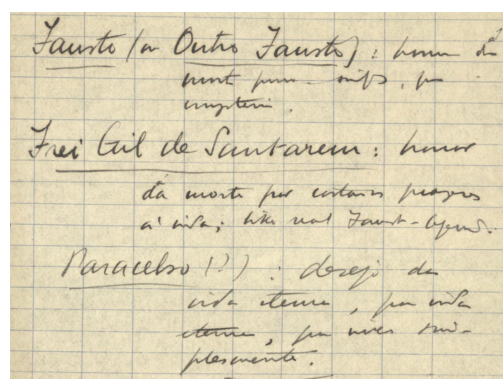 Fausto (ou Outro Fausto) : horror da
morte pura-
mysterio.
Frei Gil de Santarem : horror
da morte por
á vida; like real Faust-legend.
Paracelso (?) : desejo da
vida eterna, por vida
eterna, por viver sim-
plesmente.